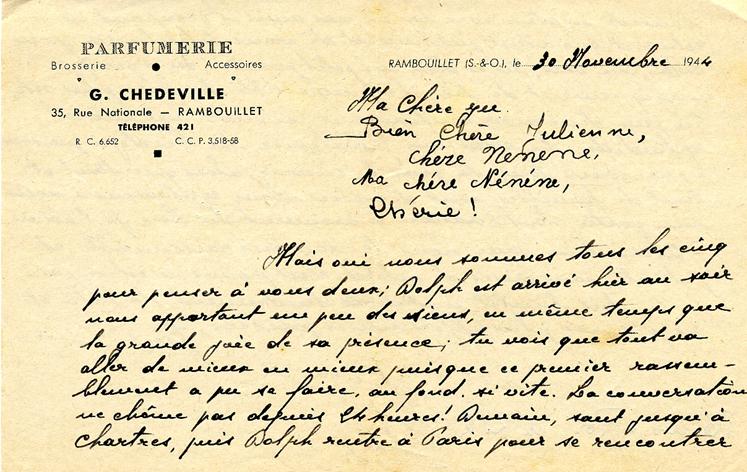 PARFUMERIE
Brosserie Accessoires
G. CHEDEVILLE
35, Rue Nationale — RAMBOUILLET
TÉLÉPHONE 421
R. C. 6.652 C. C. P. 3.518-58
RAMBOUILLET (S.-&-O.), le 30 Novembre 1944
Ma Chère
Bien Chère Julienne,
Chère Nenene,
Ma chère Nénéne,
Chérie !
Mais oui nous sommes tous les cinq
pour penser à vous deux; Dolph est arrivé hier au soir
nous apportant un peu des siens, en même temps que
la grande joie de sa présence; tu vois que tout va
aller de mieux en mieux puisque ce premier rassem-
blement a pu se faire, au fond, si vite. La conversation
ne chôme pas depuis 24 heures! Demain, saut jusqu'à
Chartres, puis Dolph rentre à Paris pour se rencontrer